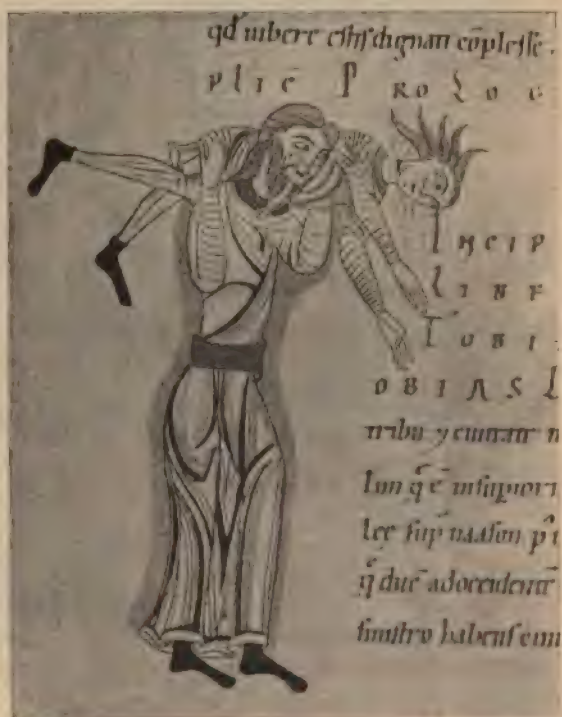 qđ iubere estis dignati cōplesse.
PLIC PROLOG
INCIP
LIBE
TOBI
OBIAS
tribu y ciuitate n
lem q̄ ē in supiori
lee sup naason p
q̄ duc̄ ad occidente
sinistro habens ciui